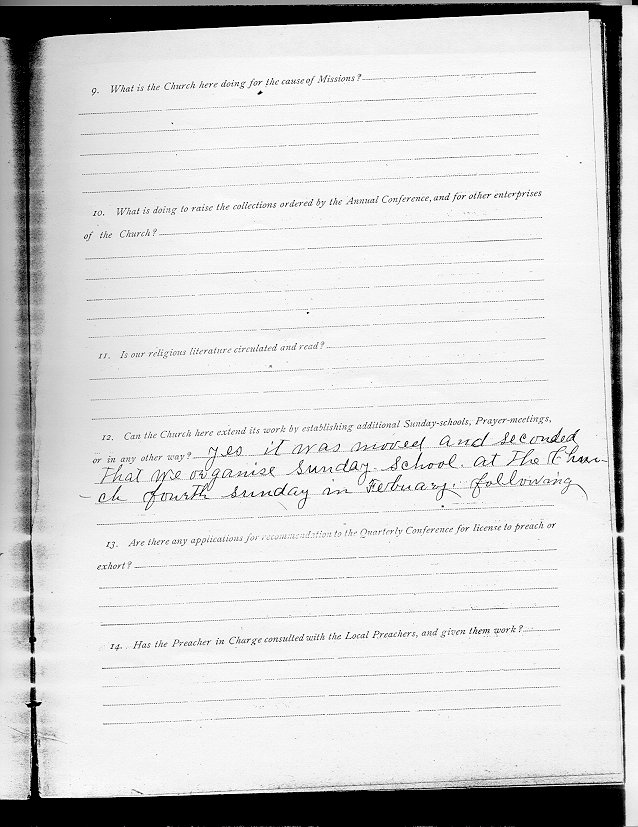 9. What is the Church here doing for the cause of Missions?
10. What is doing to raise the collections ordered by the Annual Conference, and for other enterprises
of the Church?
11. Is our religious literature circulated and read?
12. Can the Church here extend its work by establishing additional Sunday-schools, Prayer-meetings,
or in any other way? yes it was moved and seconded
that we organise Sunday School. at the Chur-
ch fourth Sunday in Febuary. following
13. Are there any applications for recommendation to the Quarterly Conference for license to preach or
exhort?
14. Has the Preacher in Charge consulted with the Local Preachers, and given them work?